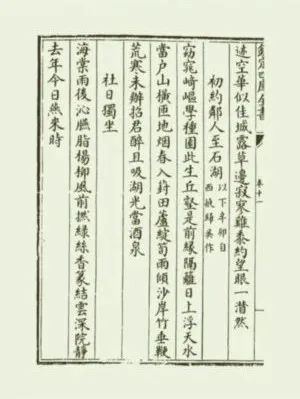 欽定四庫全書
卷十一
遠空華似佳城露草邊寂寒雖泰約望眼一潸然
初約鄰人至石湖 以下辛卯自西掖歸吳作
窈窕崎嶇學種園此生丘壑是前緣隔籬日上浮天水
當戶山橫匝地烟春入葑田蘆綻筍雨傾沙岸竹垂鞭
荒寒未辦招君醉且吸湖光當酒泉
社日獨坐
海棠雨後沁臙脂楊柳風前撚綠絲香篆結雲深院靜
去年今日燕來時